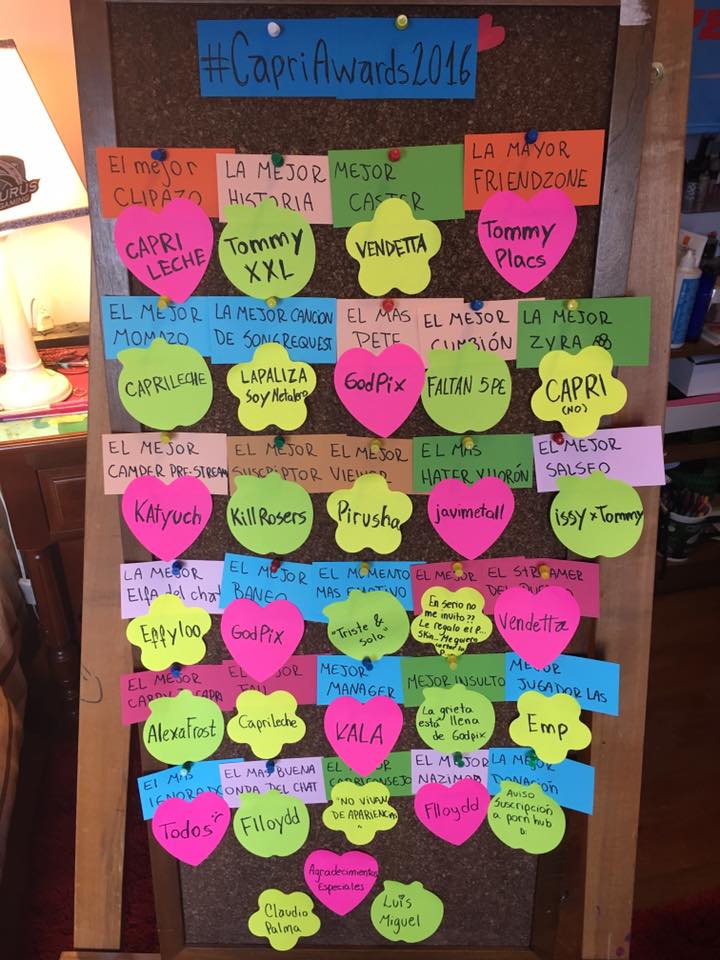 #CapriAwards2016
El mejor
CLIPAZO
CAPRI
LECHE
LA MEJOR
HISTORIA
Tommy
XXL
MEJOR
CASTER
VENDETTA
LA MAYOR
FRIENDZONE
Tommy
Placs
EL MEJOR
MOMAZO
CAPRILECHE
LA MEJOR CANCION
DE SONGREQUEST
LAPALIZA
Soy Metalero
EL MAS
PETE
GodPix
EL MEJOR
CUMBIÓN
FALTAN 5 PE
LA MEJOR
ZYRA
CAPRI
(NO)
EL MEJOR
CAMPER PRE-STREAM
KAtyuch
EL MEJOR
SUSCRIPTOR
KillRosers
EL MEJOR
VIEWER
Pirusha
EL MAS
HATER Y LLORÓN
javimetall
EL MEJOR
SALSEO
issy x Tommy
LA MEJOR
Elfa del chat
Effyloo
EL MEJOR
BANEO
GodPix
EL MOMENTO
MAS EMOTIVO
"Triste &
sola"
EL MEJOR
En serio no
me invito??
Le regalo el P...
Skin.. Me quiero
cortar la
P...
EL STREAMER
DEL PUEBLO
Vendetta
EL MEJOR
CARRY DE CAPRI
AlexaFrost
EL MEJOR
FAIL
Caprileche
MEJOR
MANAGER
KALA
MEJOR INSULTO
La grieta
está llena
de Godpix
MEJOR
JUGADOR LAS
Emp
EL MAS
IGNORADO
Todos
EL MAS BUENA
ONDA DEL CHAT
Flloydd
EL MEJOR
CAPRICONSEJO
"NO VIVAN
DE APARIENCIAS
"
EL MEJOR
NAZIMOD
Flloydd
LA MEJOR
DONACIÓN
Aviso
suscripción
a pornhub
D:
Agradecimientos
Especiales
Claudio
Palma
Luis
Miguel
URUS
GAMING